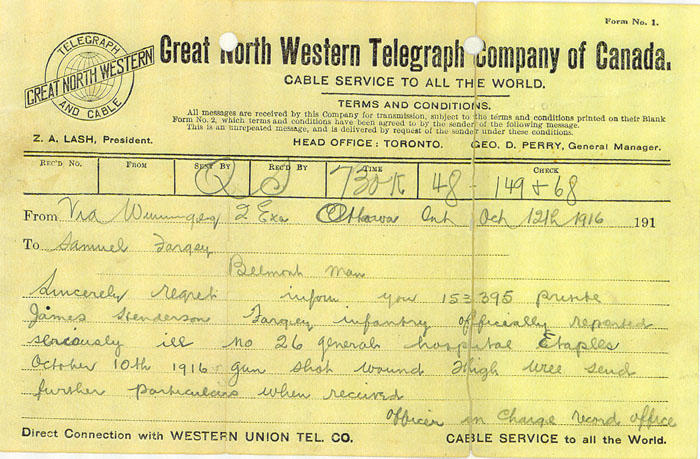 Form No. 1.
TELEGRAPH
GREAT NORTH WESTERN
AND CABLE
Great North Western Telegraph Company of Canada.
CABLE SERVICE TO ALL THE WORLD.
TERMS AND CONDITIONS.
All messages are received by this Company for transmission, subject to the terms and conditions printed on their Blank
Form No. 2, which terms and conditions have been agreed to by the sender of the following message.
This is an unrepeated message, and is delivered by request of the sender under these conditions.
Z. A. LASH, President.
HEAD OFFICE: TORONTO.
GEO. D. PERRY, General Manager.
REC'D NO. FROM SENT BY REC'D BY TIME CHECK
730 48 - 149 & 68
From Via Winnipeg Ottawa Ont Oct 12th 1916 191
To Samuel Fargey
Belmont Man
Sincerely regret inform you 153395 private
James Henderson Fargey infantry officially reported
seriously ill no 26 general hospital Etaples
October 10th 1916 gun shot wound thigh will send
further particulars when received
officer in charge record office
Direct Connection with WESTERN UNION TEL. CO.
CABLE SERVICE to all the World.